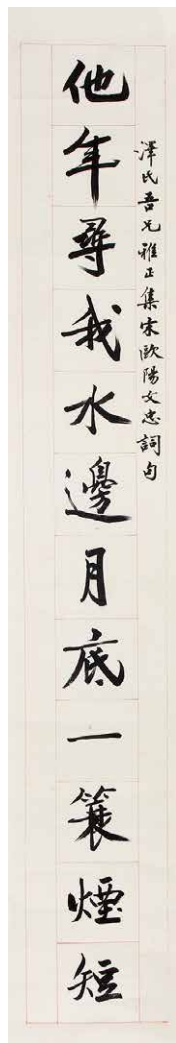 澤民吾兄雅正集宋歐陽文忠詞句
他年尋我水邊月底一簑煙短